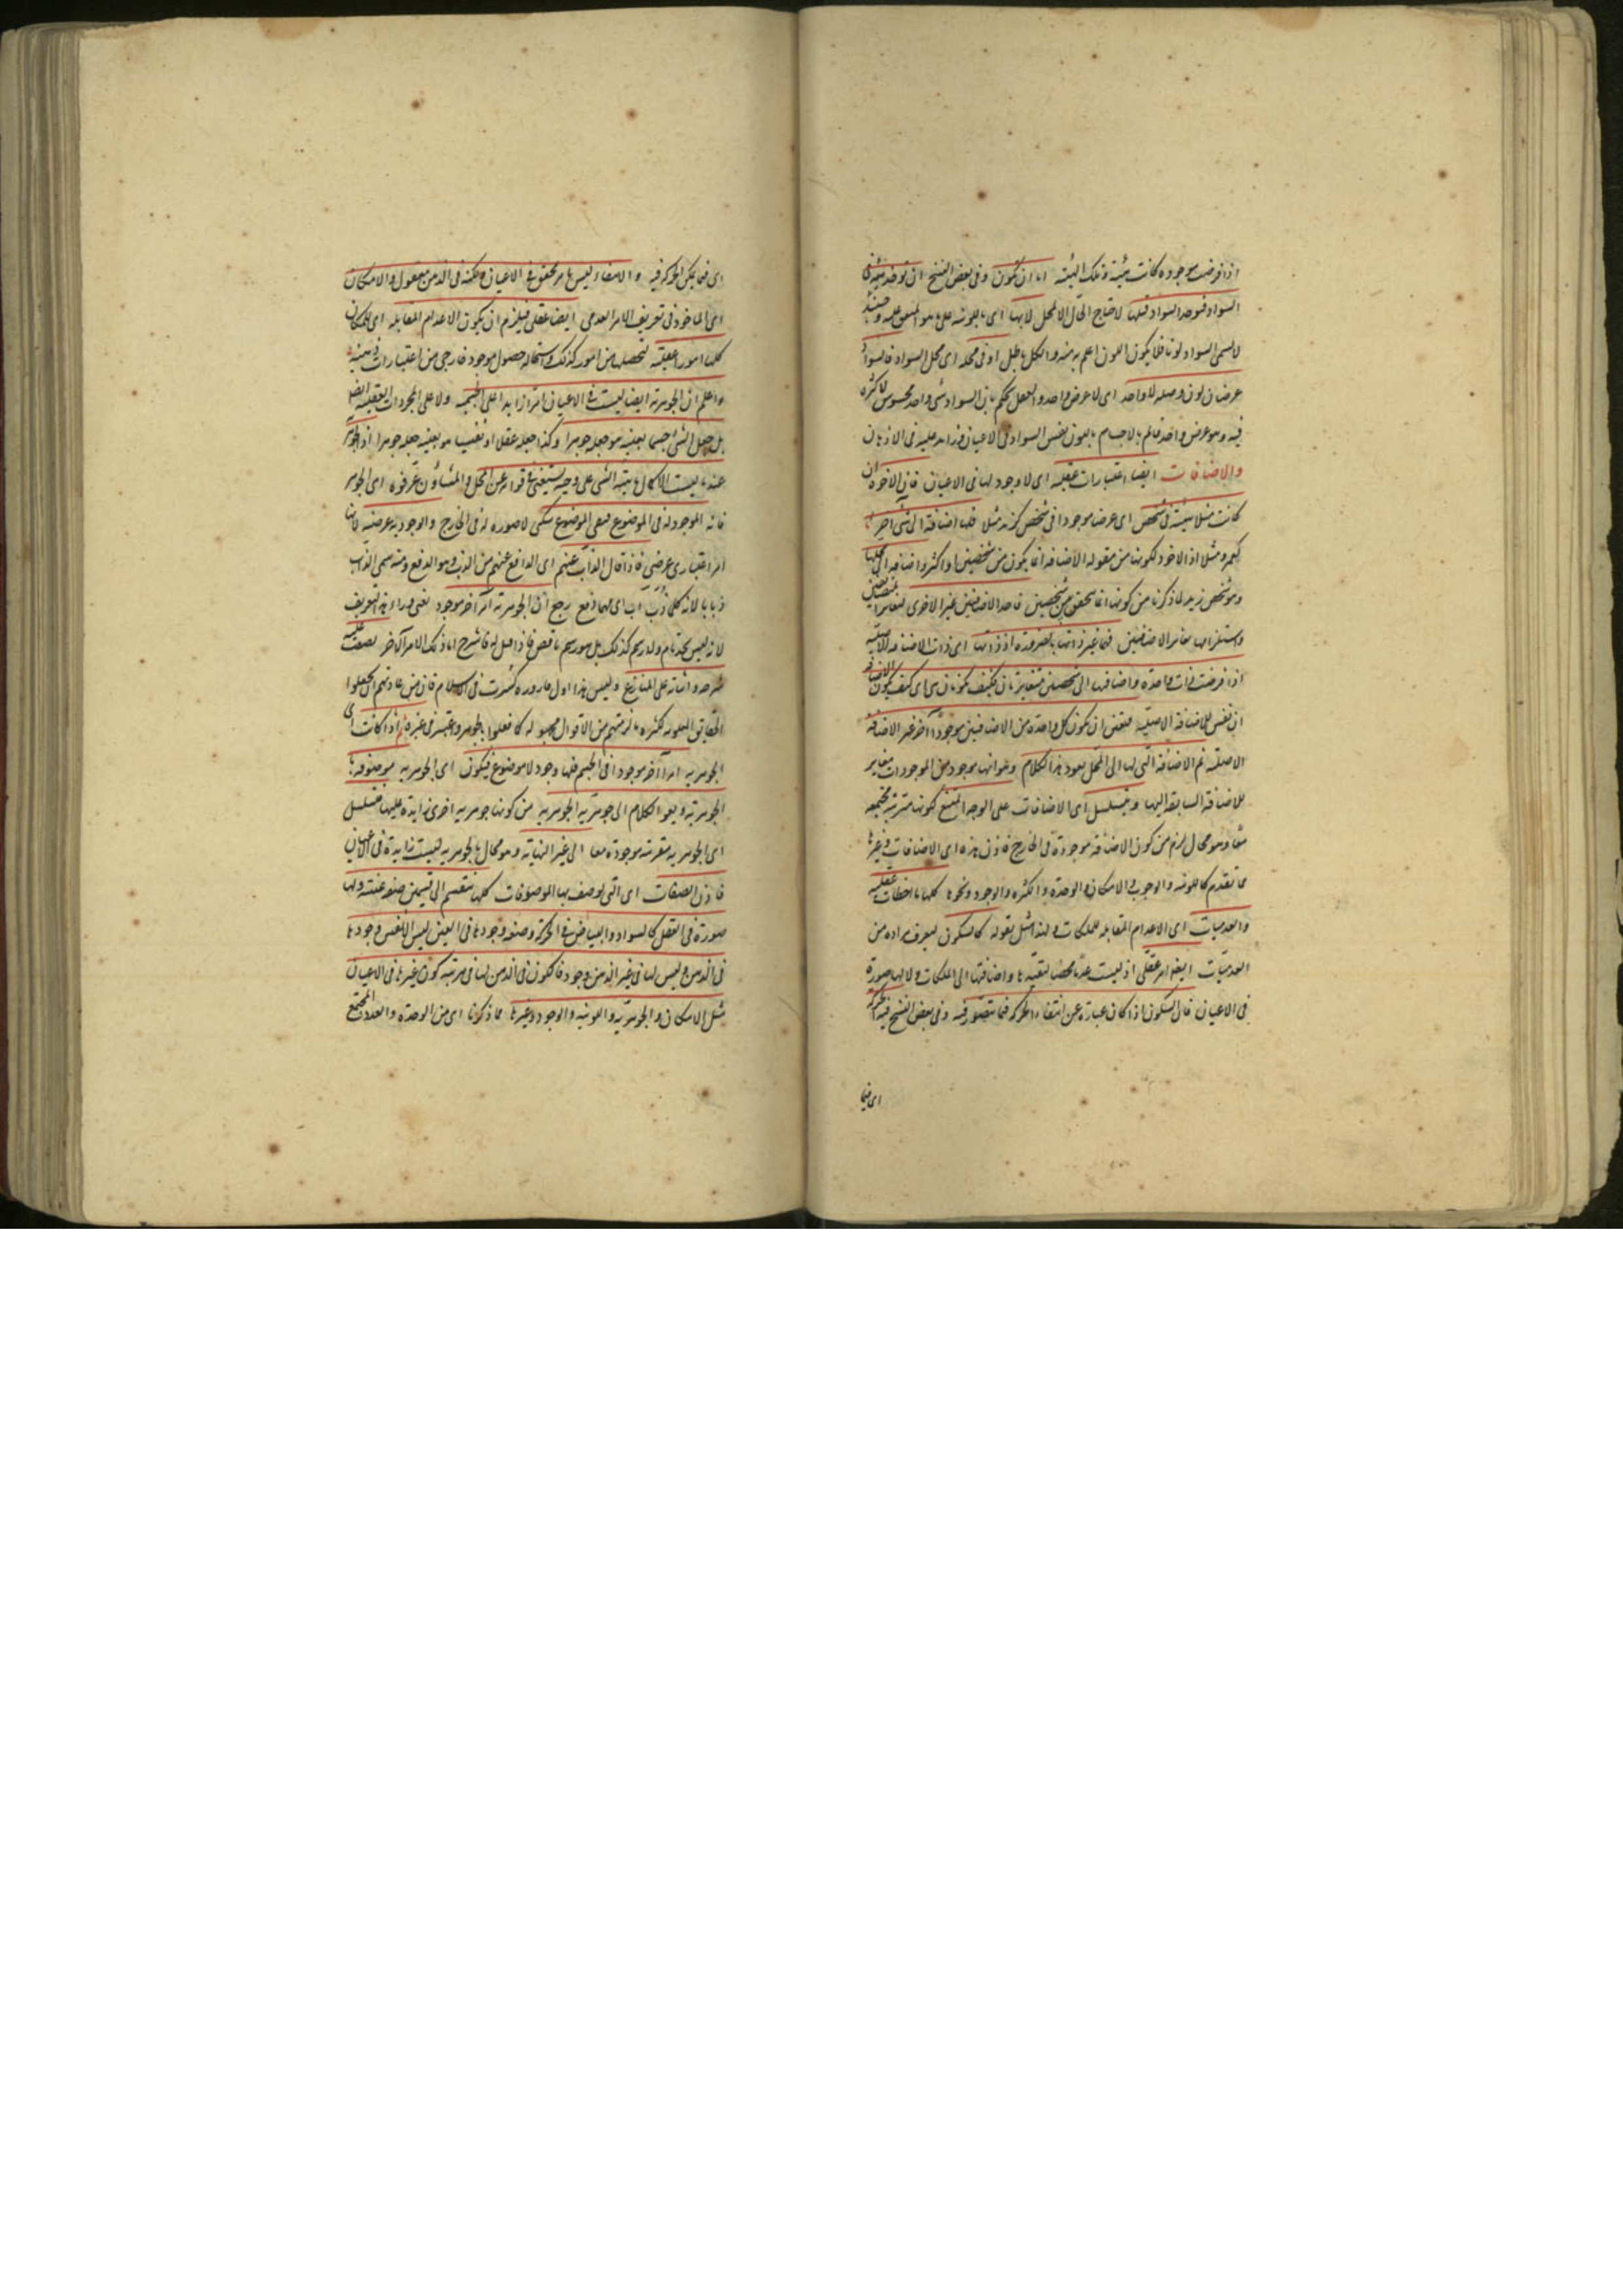 اذا فرضت موجودة كانت هيئة و تلك الهيئة اما ان تكون وفى بعض النسخ ان توجد هيئة فى
السواد فيوجد السواد قبلها لاحتياج الحال الى المحل لا بها اى باللونية على ما هو المتفق عليه وحينئذ
لا يسمى السواد لونا فلا يكون اللون اعم منه والكل باطل او فى محله اى محل السواد فالسواد
عرضان لون و فصله لا واحد اى لا عرض واحد والعقل يحكم بان السواد شئ واحد محسوس لا كثرة
فيه وهو عرض واحد قائم بالاجسام فاللون نفس السواد فى الاعيان وزائد عليه فى الاذهان
والاضافات ايضا اعتبارات عقلية اى لا وجود لها فى الاعيان فان الاخوة ان
كانت مثلا هيئة فى شخص اى عرضا موجودا فى شخص كزيد مثلا فلها اضافة الى شئ آخر
كعمرو مثلا اذ الاخوة لكونها من مقولة الاضافة انما يكون من شخصين او اكثر واضافة الى محلها
وهو شخص زيد لما ذكرنا من كونها انما تتحقق بين شخصين فاحد الاضافتين غير الاخرى لتغاير المتضايفين
واستلزامها تغاير الاضافتين فهما غير ذاتها بالضرورة اذ ذاتها اى ذات الاضافة الاصلية
اذا فرضت ذات واحدة واضافتها الى شخصين متغايرتان فكيف تكونان هى اى كيف تكون الاضافتان
ان نفس الاضافة الاصلية فتعين ان تكون كل واحدة من الاضافتين موجودا آخر غير الاضافة
الاصلية ثم الاضافة التى لها الى المحل يعود هذا الكلام وهو انها موجود من الموجودات مغاير
للاضافة السابقة اليها ويتسلسل اى الاضافات على الوجه الممتنع لكونها مترتبة مجتمعة
معا وهو محال لزم من كون الاضافة موجودة فى الخارج فاذن هذه اى الاضافات وغيرها
مما تقدم كاللونية والوجوب والامكان والوحدة والكثرة والوجود ونحوها كلها ملاحظات عقلية
والعدميات اى الاعدام المقابلة للملكات ولهذا مثل بقوله كالسكون ليعرف مراده من
العدميات ايضا امر عقلى اذ ليست عدما محضا لتقيدها واضافتها الى الملكات ولا لها صورة
فى الاعيان فان السكون اذا كان عبارة عن انتفاء الحركة فيما تتصور فيه وفى بعض النسخ فيه الحركة
اى فيما
اى فيما يمكن الحركة فيه والانتفاء ليس بامر محقق فى الاعيان ولكنه فى الذهن معقول والامكان
اى الماخوذ فى تعريف الامر العدمى ايضا عقلى فيلزم ان يكون الاعدام المقابلة اى للملكات
كلها امورا عقلية لتحصلها من امور كذلك واستحالة حصول موجود خارجى من اعتبارات ذهنية
واعلم ان الجوهرية ايضا ليست فى الاعيان امرا زايدا على الجسمية ولا على المجردات العقلية ايضا
بل جعل الشئ جسما بعينه هو جعله جوهرا وكذا جعله عقلا او نفسا هو بعينه جعله جوهرا اذ الجوهرية
عندنا ليست الا كمال ماهية الشئ على وجه يستغنى فى قوامه عن المحل والمشاؤون عرفوه اى الجوهر
فانه الموجود لا فى الموضوع فنفى الموضوع سلبى لا صورة له فى الخارج والوجودية عرضية لانها
امر اعتبارى عرضى فاذا قال الذاب عنهم اى الدافع عنهم من الذب وهو الدفع ومنه سمى الذباب
ذبابا لانه كلما ذب آب اى مهما دفع رجع ان الجوهرية امر آخر موجود يعنى وراء هذا التعريف
لانه ليس بحد تام ولا رسم كذلك بل هو رسم ناقص فاذا قيل له فاشرح لنا ذلك الامر الآخر يصعب عليه
شرحه واثباته على المنازع وليس هذا اول قارورة كسرت فى الاسلام فان من عادتهم ان يجعلوا
الحقايق المعلومة كثيرة بالزامهم من الاقوال مجهولة كما فعلوا بالجوهر وغيره ثم اذا كانت اى
الجوهرية امرا آخر موجودا فى الجسم فلها وجود لا فى موضوع فيكون اى الجوهرية موصوفة با
الجوهرية ويعود الكلام الى جوهرية الجوهرية من كونها جوهرية اخرى زايدة عليها فتسلسل
اى الجوهرية مترتبة موجودة معا الى غير النهاية وهو محال فالجوهرية ليست زايدة فى الاعيان
فاذن الصفات اى التى يوصف بها الموصوفات كلها تنقسم الى قسمين صفة عينية ولها
صورة فى العقل كالسواد والبياض والحركة وصفة وجودها فى العين ليس الا نفس وجودها
فى الذهن وليس لها فى غير الذهن وجود فالكون فى الذهن لها فى مرتبة كون غيرها فى الاعيان
مثل الامكان والجوهرية واللونية والوجود وغيرها مما ذكرنا اى من الوحدة والعدد